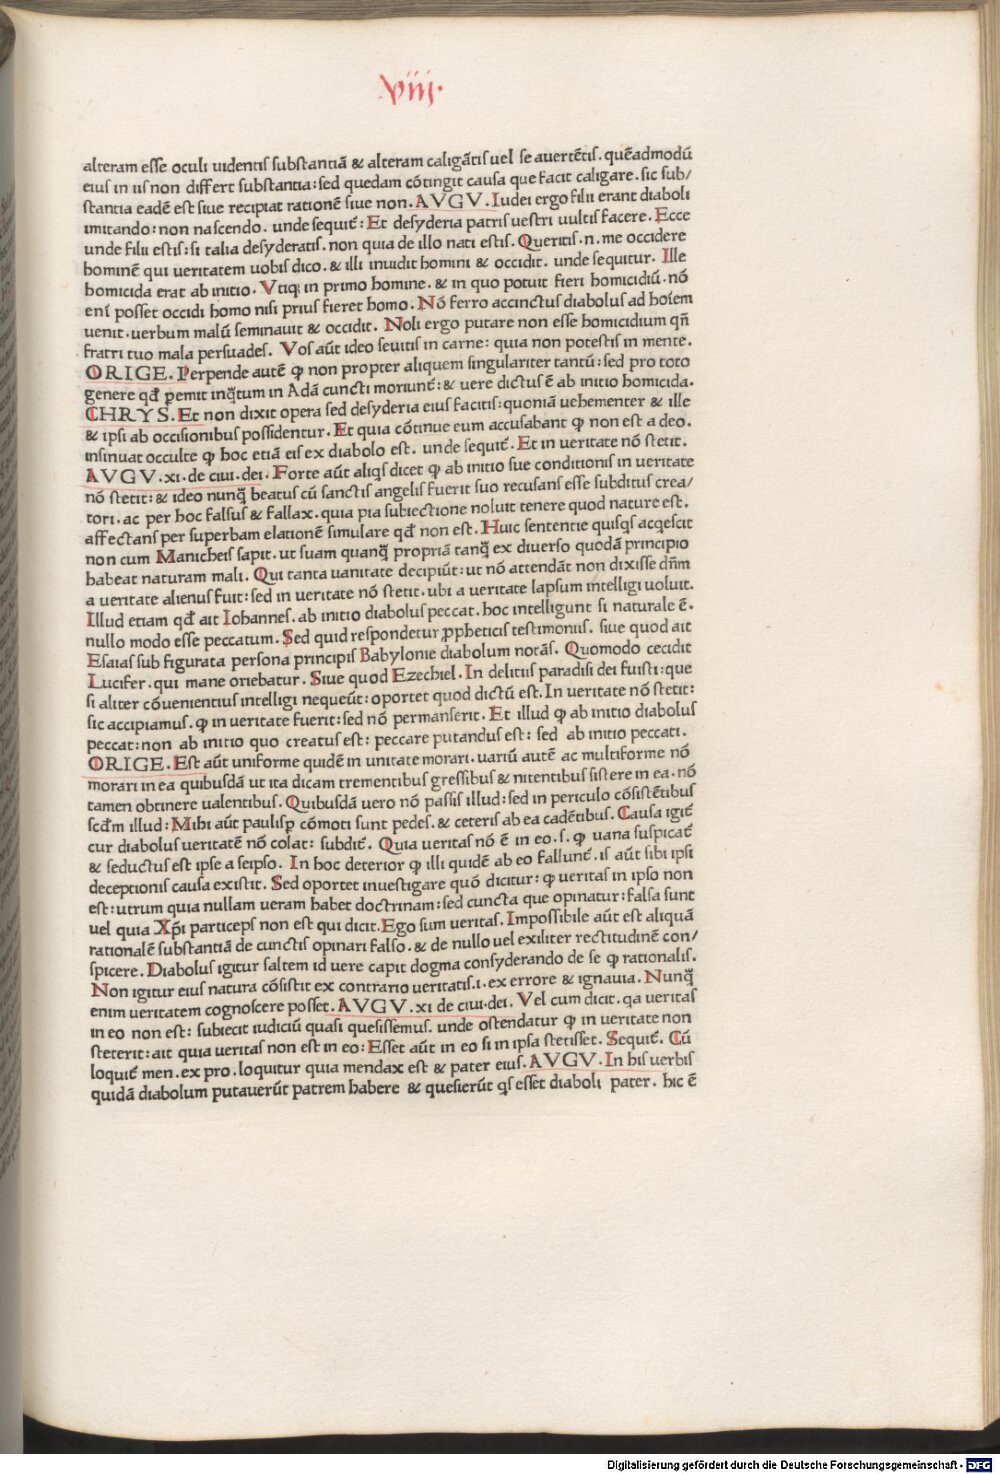 viij.
alteram esse oculi uidentis substantiā & alteram caligātis uel se auertētis. quēadmodū
eius in iis non differt substantia: sed quedam cōtingit causa que facit caligare. sic sub/
stantia eadē est siue recipiat rationē siue non. AVGV. Iudei ergo filii erant diaboli
imitando: non nascendo. unde sequit᷑: Et desyderia patris uestri uultis facere. Ecce
unde filii estis: si talia desyderatis. non quia de illo nati estis. Queritis .n. me occidere
hominē qui ueritatem uobis dico. & illi inuidit homini & occidit. unde sequitur. Ille
homicida erat ab initio. Vtiq; in primo homine. & in quo potuit fieri homicidiū. nō
eni᷑ posset occidi homo nisi prius fieret homo. Nō ferro accinctus diabolus ad hoīem
uenit. uerbum malū seminauit & occidit. Noli ergo putare non esse homicidium qn̄
fratri tuo mala persuades. Vos aūt ideo seuitis in carne: quia non potestis in mente.
ORIGE. Perpende autē ꝙ non propter aliquem singulariter tantū: sed pro toto
genere qđ pemit inq̄tum in Adā cuncti moriunt᷑: & uere dictus ē ab initio homicida.
CHRYS. Et non dixit opera sed desyderia eius facitis: quoniā uehementer & ille
& ipsi ab occisionibus possidentur. Et quia cōtinue eum accusabant ꝙ non est a deo.
insinuat occulte ꝙ hoc etiā eis ex diabolo est. unde sequit᷑. Et in ueritate nō stetit.
AVGV. xi. de ciui. dei. Forte aūt aliq̄s dicet ꝙ ab initio sue conditionis in ueritate
nō stetit: & ideo nunq̄ beatus cū sanctis angelis fuerit suo recusans esse subditus crea/
tori. ac per hoc falsus & fallax. quia pia subiectione noluit tenere quod nature est.
affectans per superbam elationē simulare qđ non est. Huic sententie quisq̄s acq̄escit
non cum Manicheis sapit. ut suam quanq̄ propriā tanq̄ ex diuerso quodā principio
habeat naturam mali. Qui tanta uanitate decipiūt: ut nō attendāt non dixisse dn̄m
a ueritate alienus fuit: sed in ueritate nō stetit. ubi a ueritate lapsum intelligi uoluit.
Illud etiam qđ ait Iohannes. ab initio diabolus peccat. hoc intelligunt si naturale ē.
nullo modo esse peccatum. Sed quid respondetur ꝓpheticis testimoniis. siue quod ait
Esaias sub figurata persona principis Babylonie diabolum notās. Quomodo cecidit
Lucifer. qui mane oriebatur. Siue quod Ezechiel. In delitiis paradisi dei fuisti: que
si aliter cōuenientius intelligi nequeūt: oportet quod dictū est. In ueritate nō stetit:
sic accipiamus. ꝙ in ueritate fuerit: sed nō permanserit. Et illud ꝙ ab initio diabolus
peccat: non ab initio quo creatus est: peccare putandus est: sed ab initio peccati.
ORIGE. Est aūt uniforme quidē in unitate morari. uariū autē ac multiforme nō
morari in ea quibusdā ut ita dicam trementibus gressibus & nitentibus sistere in ea. nō
tamen obtinere ualentibus. Quibusdā uero nō passis illud: sed in periculo cōsistētibus
scđm illud: Mihi aūt paulisꝑ cōmoti sunt pedes. & ceteris ab ea cadētibus. Causa igit᷑
cur diabolus ueritatē nō colat: subdit᷑. Quia ueritas nō ē in eo .s. ꝙ uana suspicat᷑
& seductus est ipse a seipso. In hoc deterior ꝙ illi quidē ab eo fallunt᷑. is aūt sibi ipsi
deceptionis causa existit. Sed oportet inuestigare quō dicitur: ꝙ ueritas in ipso non
est: utrum quia nullam ueram habet doctrinam: sed cuncta que opinatur: falsa sunt
uel quia Xp̄i particeps non est qui dicit. Ego sum ueritas. Impossibile aūt est aliquā
rationalē substantiā de cunctis opinari falso. & de nullo uel exiliter rectitudinē con/
spicere. Diabolus igitur saltem id uere capit dogma consyderando de se ꝙ rationalis.
Non igitur eius natura cōsistit ex contrario ueritatis .i. ex errore & ignauia. Nunq̄
enim ueritatem cognoscere posset. AVGV. xi de ciui. dei. Vel cum dicit. qa ueritas
in eo non est: subiecit iudiciū quasi quesissemus. unde ostendatur ꝙ in ueritate non
steterit: ait quia ueritas non est in eo: Esset aūt in eo si in ipsa stetisset. Sequit᷑. Cū
loquit᷑ men. ex pro. loquitur quia mendax est & pater eius. AVGV. In his uerbis
quidā diabolum putauerūt patrem habere & quesierūt q̄s esset diaboli pater. hic ē
Digitalisierung gefördert durch die Deutsche Forschungsgemeinschaft - DFG